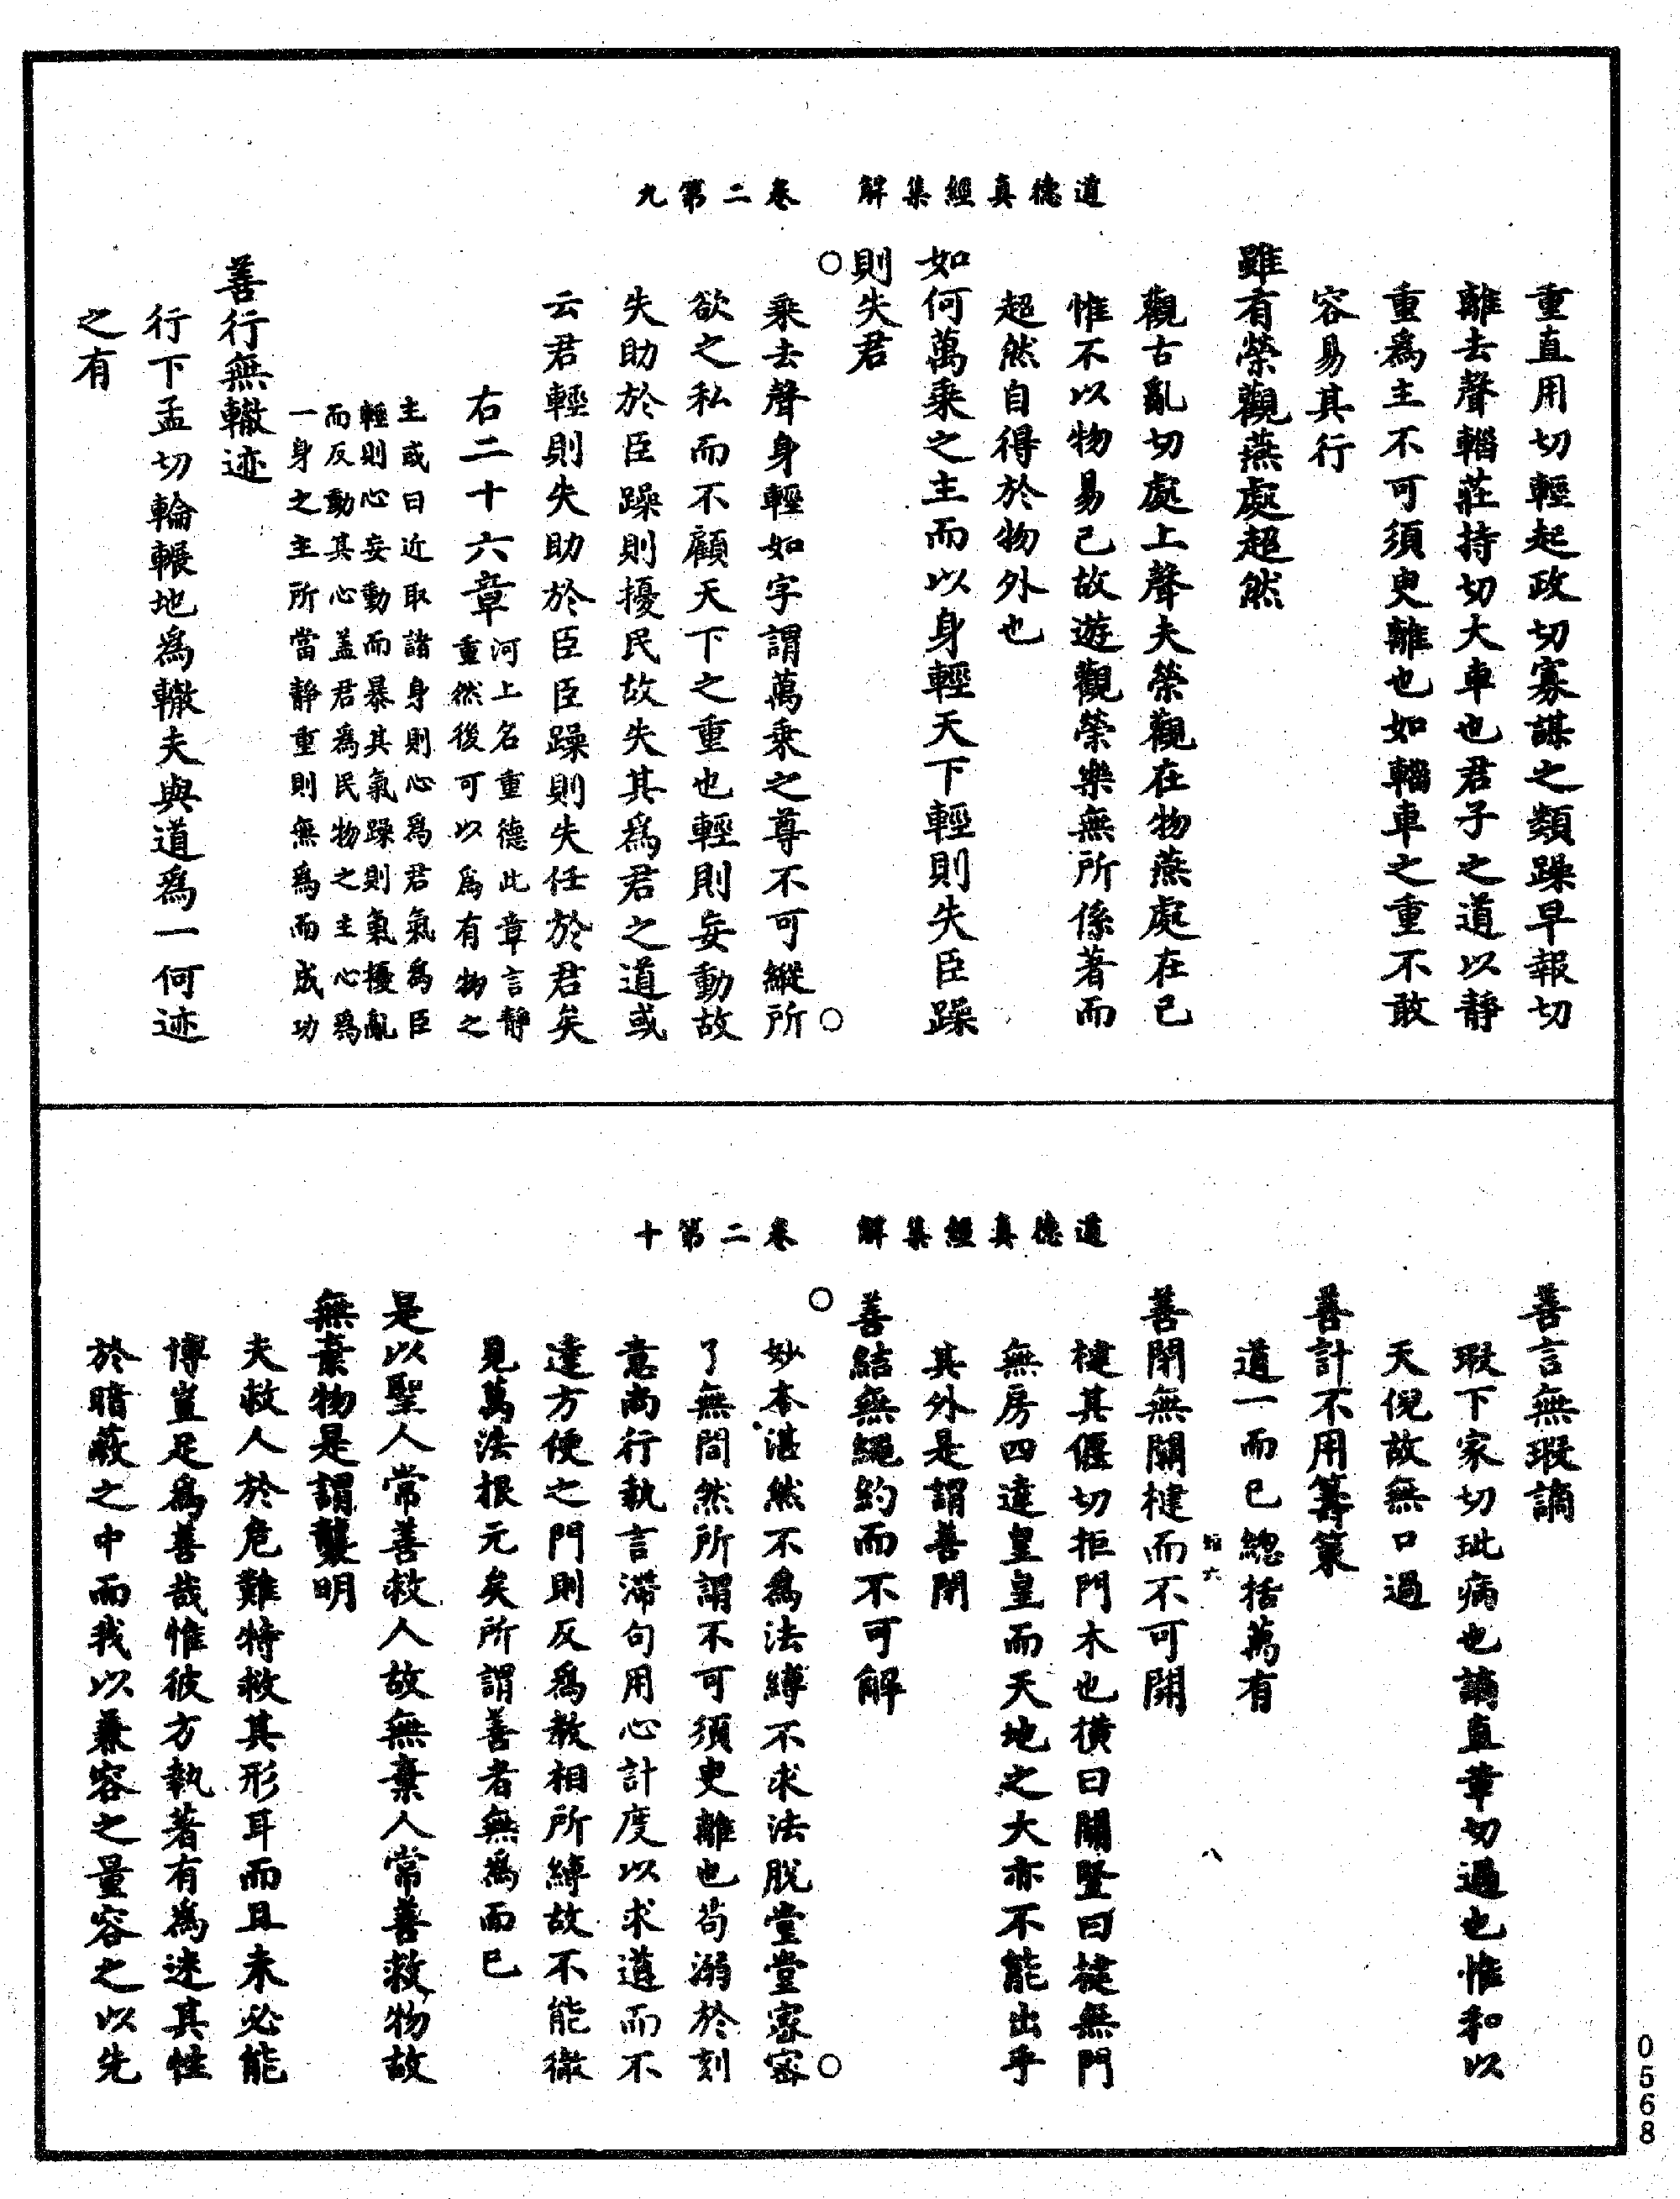 道德真經集解　卷二第九
重直用切輕起政切寡謀之類躁早報切
離去聲輜莊持切大車也君子之道以靜
重為主不可須臾離也如輜車之重不敢
容易其行
雖有榮觀燕處超然
觀古亂切處上聲夫榮觀在物燕處在己
惟不以物易己故遊觀榮樂無所係著而
超然自得於物外也
如何萬乘之主而以身輕天下輕則失臣躁
則失君
乘去聲身輕如字謂萬乘之尊不可縱所
欲之私而不顧天下之重也輕則妄動故
失助於臣躁則擾民故失其為君之道或
云君輕則失助於臣臣躁則失任於君矣
右二十六章河上名重德此章言靜
重然後可以為有物之
主或曰近取諸身則心為君氣為臣
輕則心妄動而暴其氣躁則氣擾亂
而反動其心蓋君為民物之主心為
一身之主所當靜重則無為而成功
善行無轍迹
行下孟切輪輾地為轍夫與道為一何迹
之有
道德真經集解　卷二第十
善言無瑕謫
瑕下家切玼病也謫直革切過也惟和以
天倪故無口過
善計不用籌策
道一而已總括萬有
善閉無關楗而不可開
楗其偃切拒門木也橫曰關豎曰楗無門
無房四達皇皇而天地之大亦不能出乎
其外是謂善閉
善結無繩約而不可解
妙本湛然不為法縛不求法脫堂堂密密
了無間然所謂不可須臾離也苟溺於刻
意尚行執言滯句用心計度以求道而不
達方便之門則反為教相所縛故不能徹
見萬法根元矣所謂善者無為而已
是以聖人常善救人故無棄人常善救物故
無棄物是謂襲明
夫救人於危難特救其形耳而且未必能
博豈足為善哉惟彼方執著有為迷其性
於暗蔽之中而我以兼容之量容之以先
六
八
0568